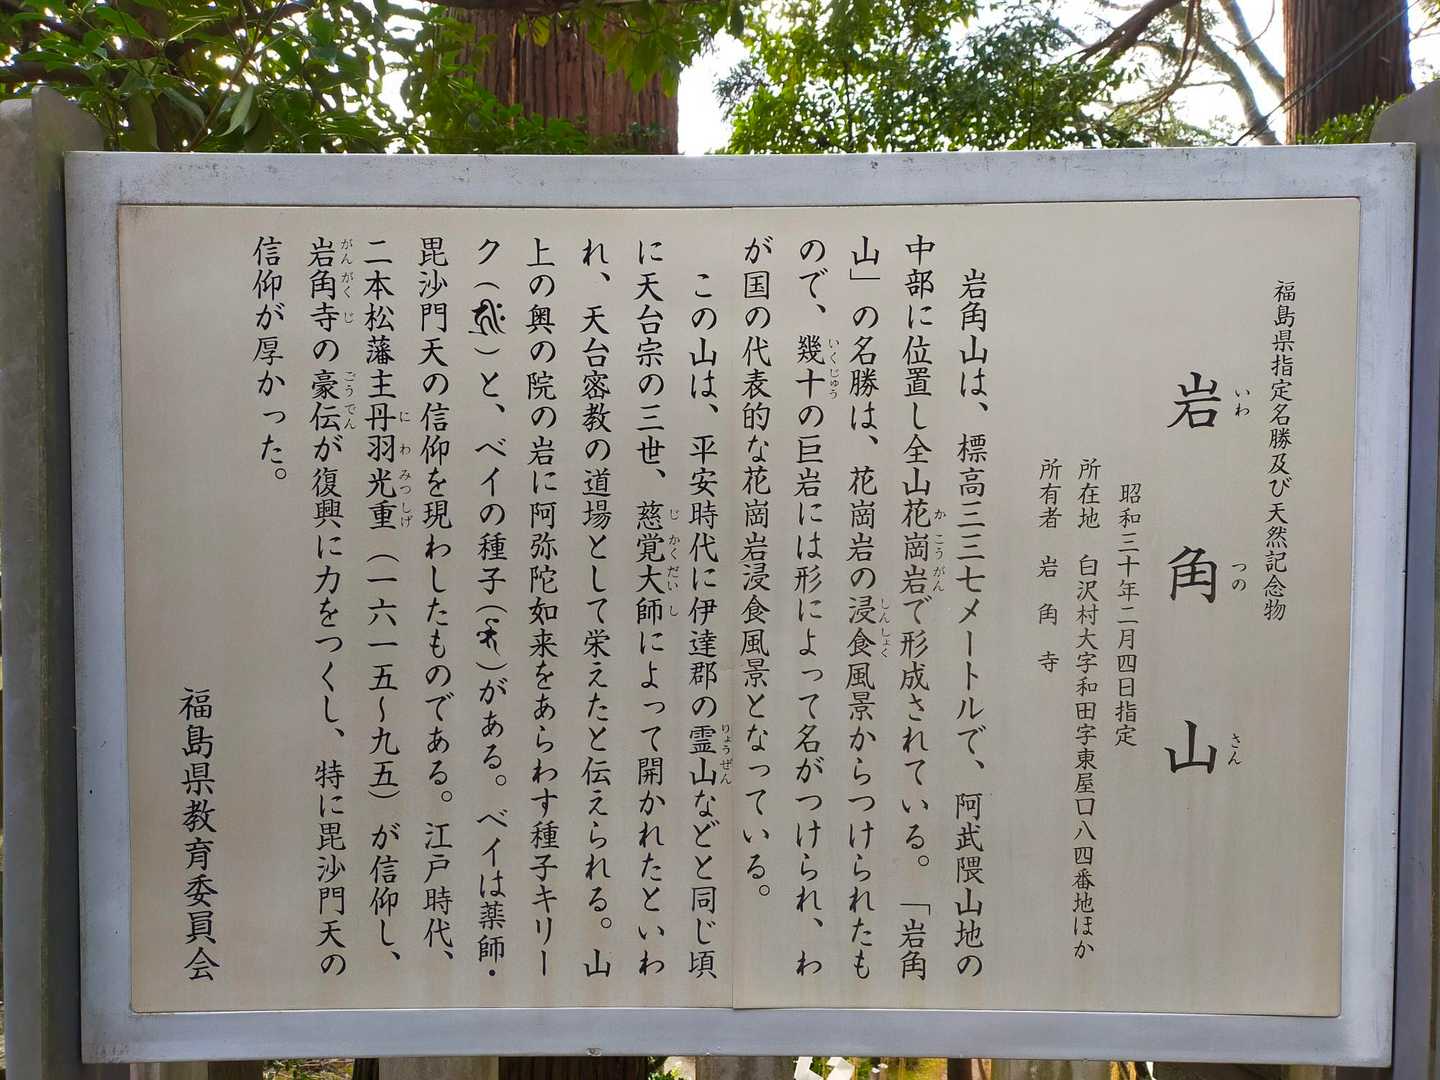 福島県指定名勝及び天然記念物
岩角山
いわ つの さん
昭和三十年二月四日指定
所在地 白沢村大字和田字東屋口八四番地ほか
所有者 岩角寺
岩角山は、標高三三七メートルで、阿武隈山地の
中部に位置し全山花崗岩で形成されている。「岩角
か こう がん
山」の名勝は、花崗岩の浸食風景からつけられたも
しんしょく
ので、幾十の巨岩には形によって名がつけられ、わ
いくじゅう
が国の代表的な花崗岩浸食風景となっている。
この山は、平安時代に伊達郡の霊山などと同じ頃
りょうぜん
に天台宗の三世、慈覚大師によって開かれたといわ
じ かくだい し
れ、天台密教の道場として栄えたと伝えられる。山
上の奥の院の岩に阿弥陀如来をあらわす種子キリー
ク()と、ベイの種子()がある。ベイは薬師・
毘沙門天の信仰を現わしたものである。江戸時代、
二本松藩主丹羽光重(一六一五〜九五)が信仰し、
に わ みつしげ
岩角寺の豪伝が復興に力をつくし、特に毘沙門天の
がんがく じ ごうでん
信仰が厚かった。
福島県教育委員会